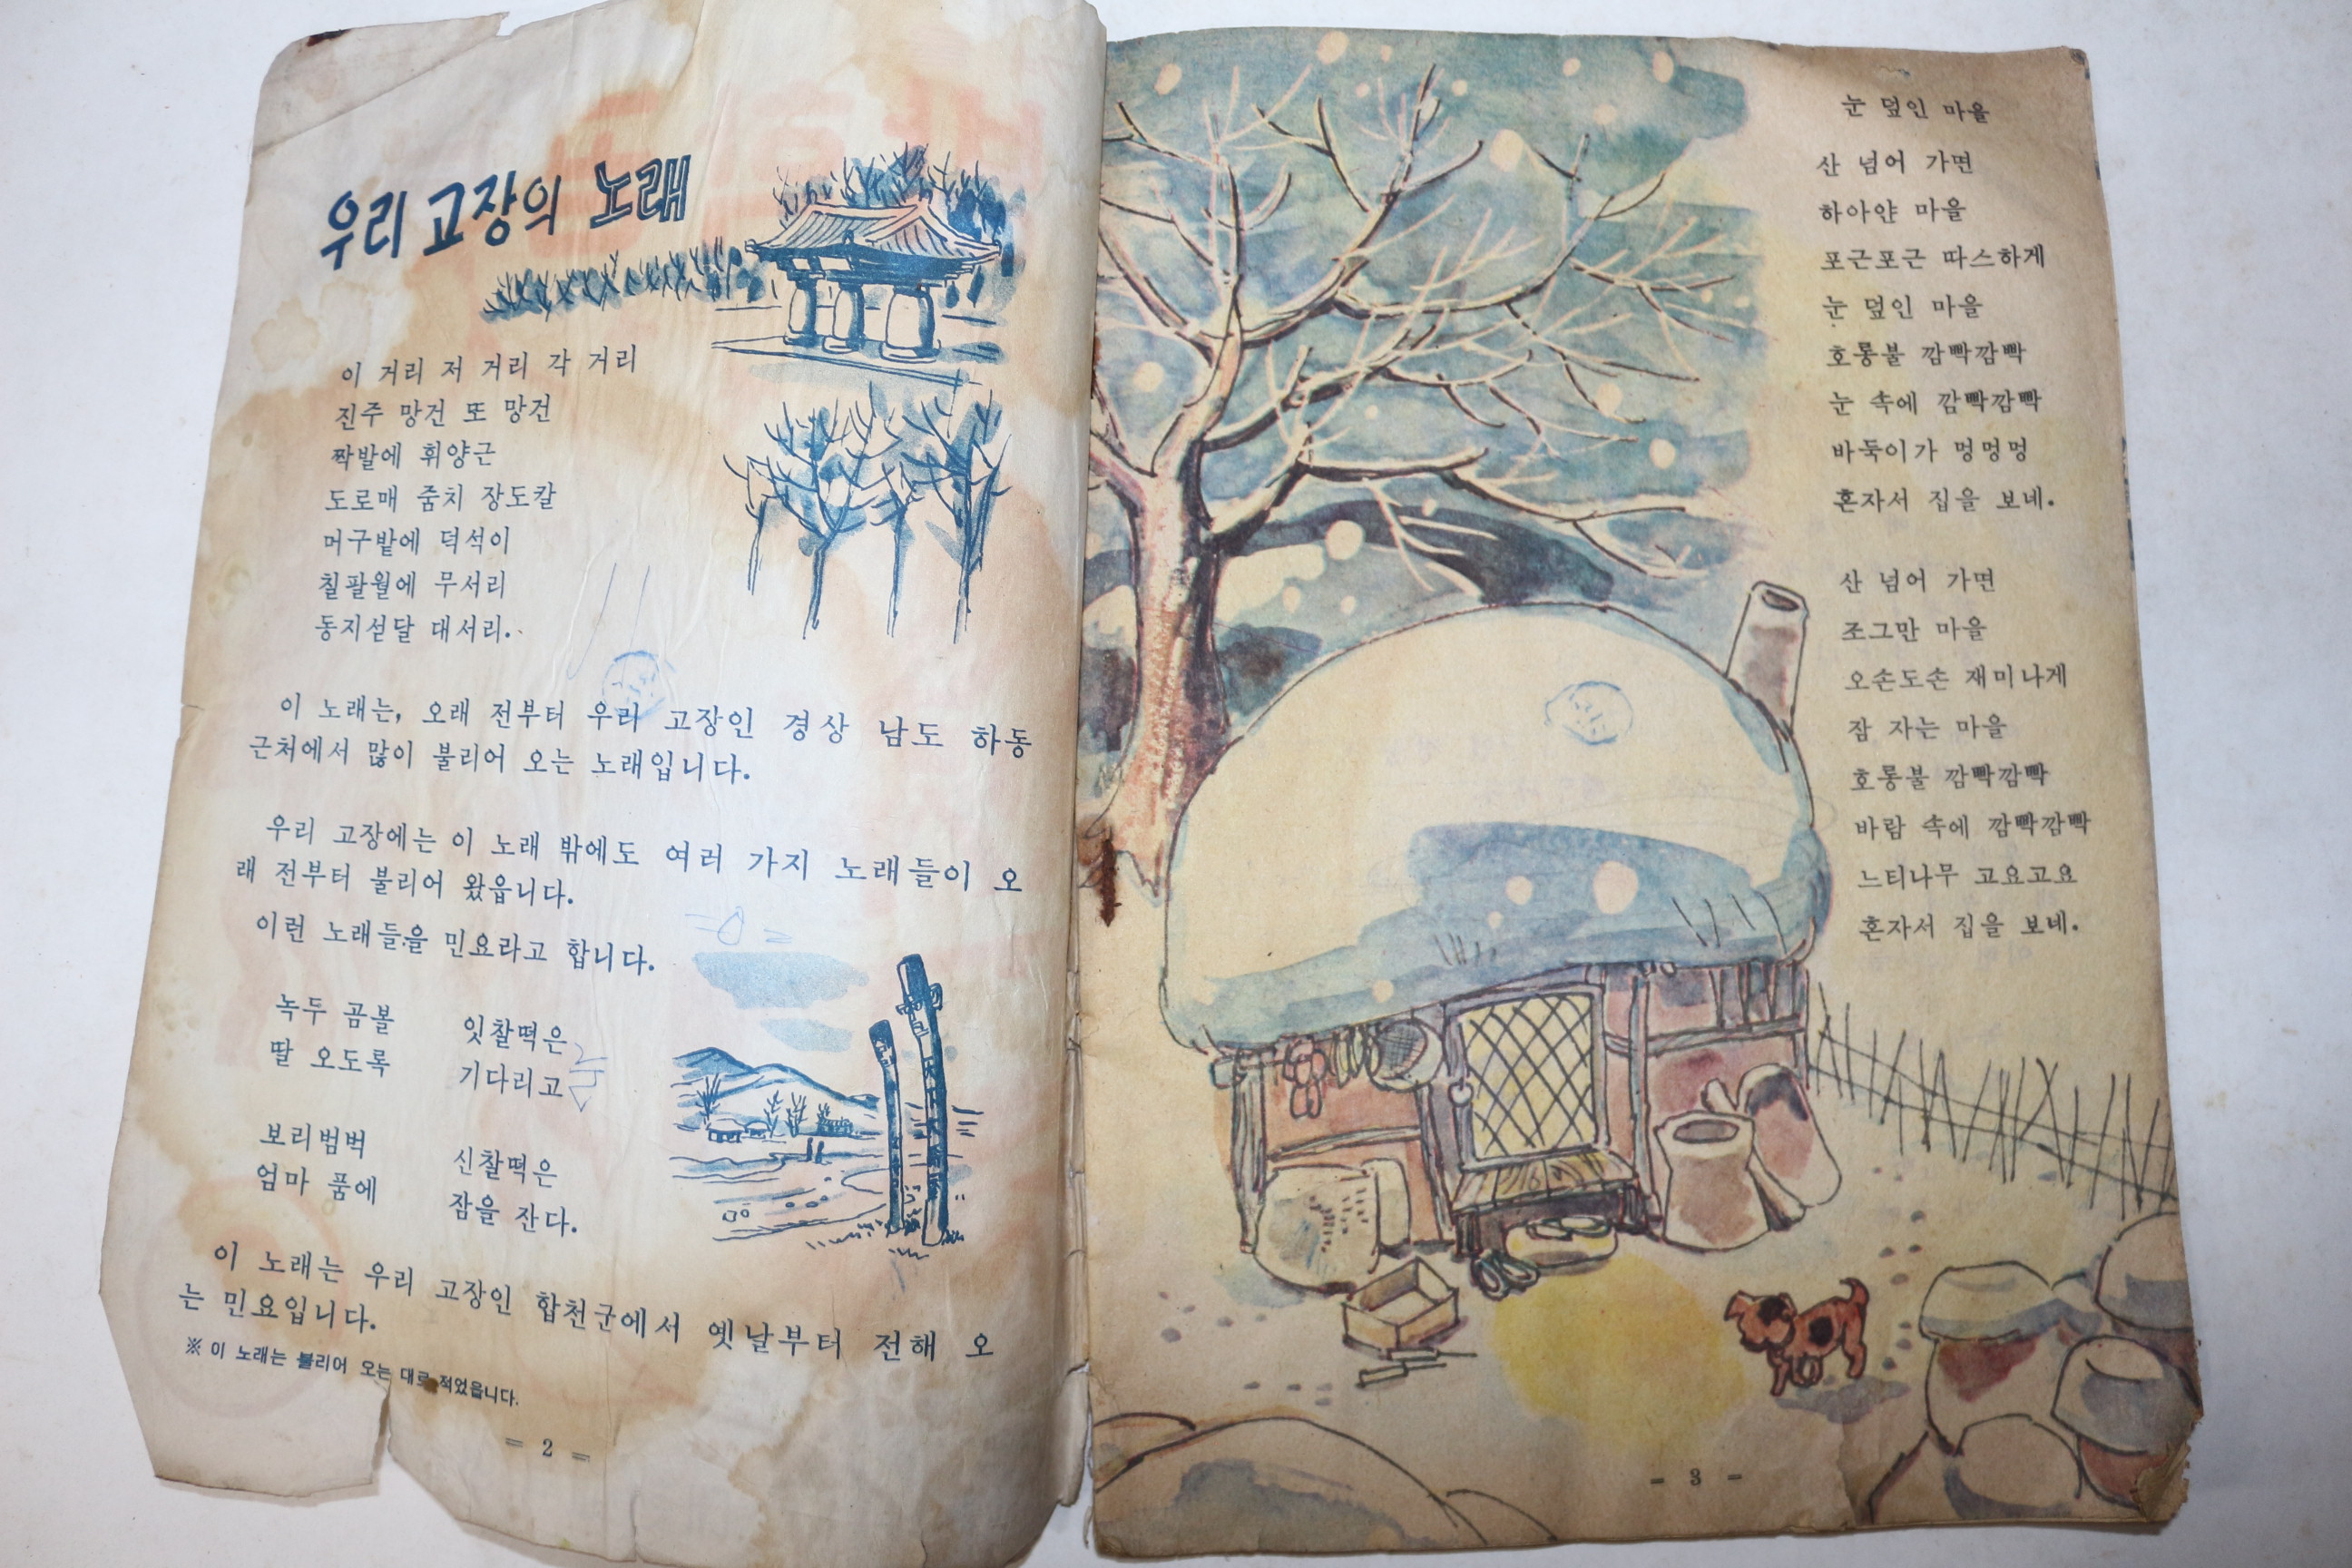 우리 고장의 노래
이 거리 저 거리 각 거리
진주 망건 또 망건
짝발에 휘양근
도로매 줌치 장도칼
머구밭에 덕석이
칠팔월에 무서리
동지섣달 대서리.
이 노래는, 오래 전부터 우리 고장인 경상 남도 하동
근처에서 많이 불리어 오는 노래입니다.
우리 고장에는 이 노래 밖에도 여러 가지 노래들이 오
래 전부터 불리어 왔읍니다.
이런 노래들을 민요라고 합니다.
녹두 곰볼 잇찰떡은
딸 오도록 기다리고
보리범벅 신찰떡은
엄마 품에 잠을 잔다.
이 노래는 우리 고장인 합천군에서 옛날부터 전해 오
는 민요입니다.
※ 이 노래는 불리어 오는 대로 적었읍니다.
= 2 =
눈 덮인 마을
산 넘어 가면
하아얀 마을
포근포근 따스하게
눈 덮인 마을
호롱불 깜빡깜빡
눈 속에 깜빡깜빡
바둑이가 멍멍멍
혼자서 집을 보네.
산 넘어 가면
조그만 마을
오손도손 재미나게
잠 자는 마을
호롱불 깜빡깜빡
바람 속에 깜빡깜빡
느티나무 고요고요
혼자서 집을 보네.
- 3 -